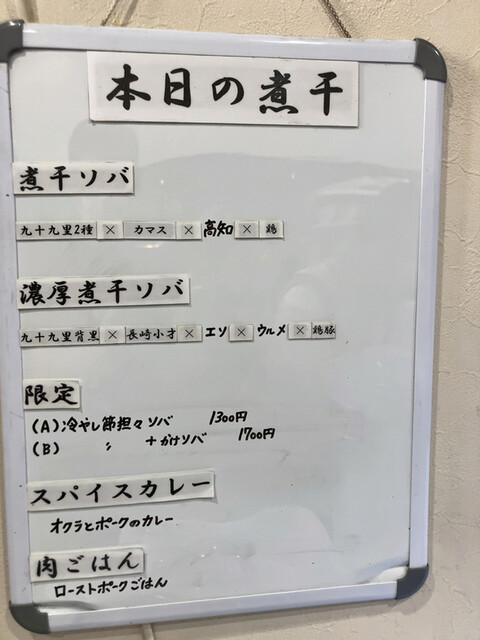 本日の煮干
煮干ソバ
九十九里2種 × カマス × 高知 × 鶏
濃厚煮干ソバ
九十九里背黒 × 長崎小才 × エソ × ウルメ × 鶏豚
限定
(A)冷やし節担々ソバ 1300円
(B) 〃 +かけソバ 1700円
スパイスカレー
オクラとポークのカレー
肉ごはん
ローストポークごはん